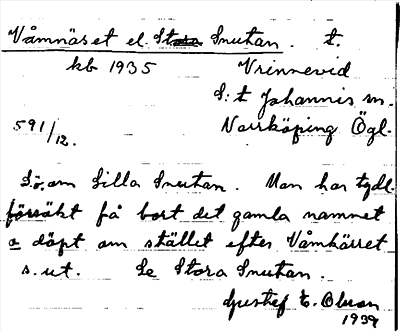 Våmnäset el. Stora Snutan. t.
kb 1935 Vrinnevid
S:t Johannis sn.
591/12. Norrköping Ögl.
Sö. om Lilla Snutan. Man har tydl.
försökt få bort det gamla namnet
o döpt om stället efter Våmkärret
s. ut. Se Stora Snutan.
Gustaf E. Olsson
1939